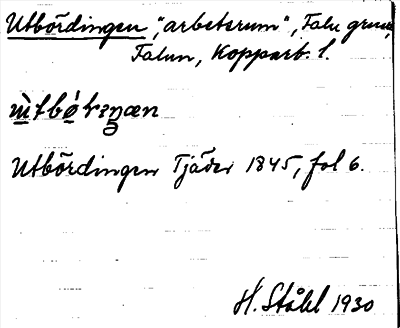 Utbördingen "arbetsrum", Falu gruva,
Falun, Kopparb. l.
Utbördingen Tjäder 1845, fol 6.
H. Ståhl 1930